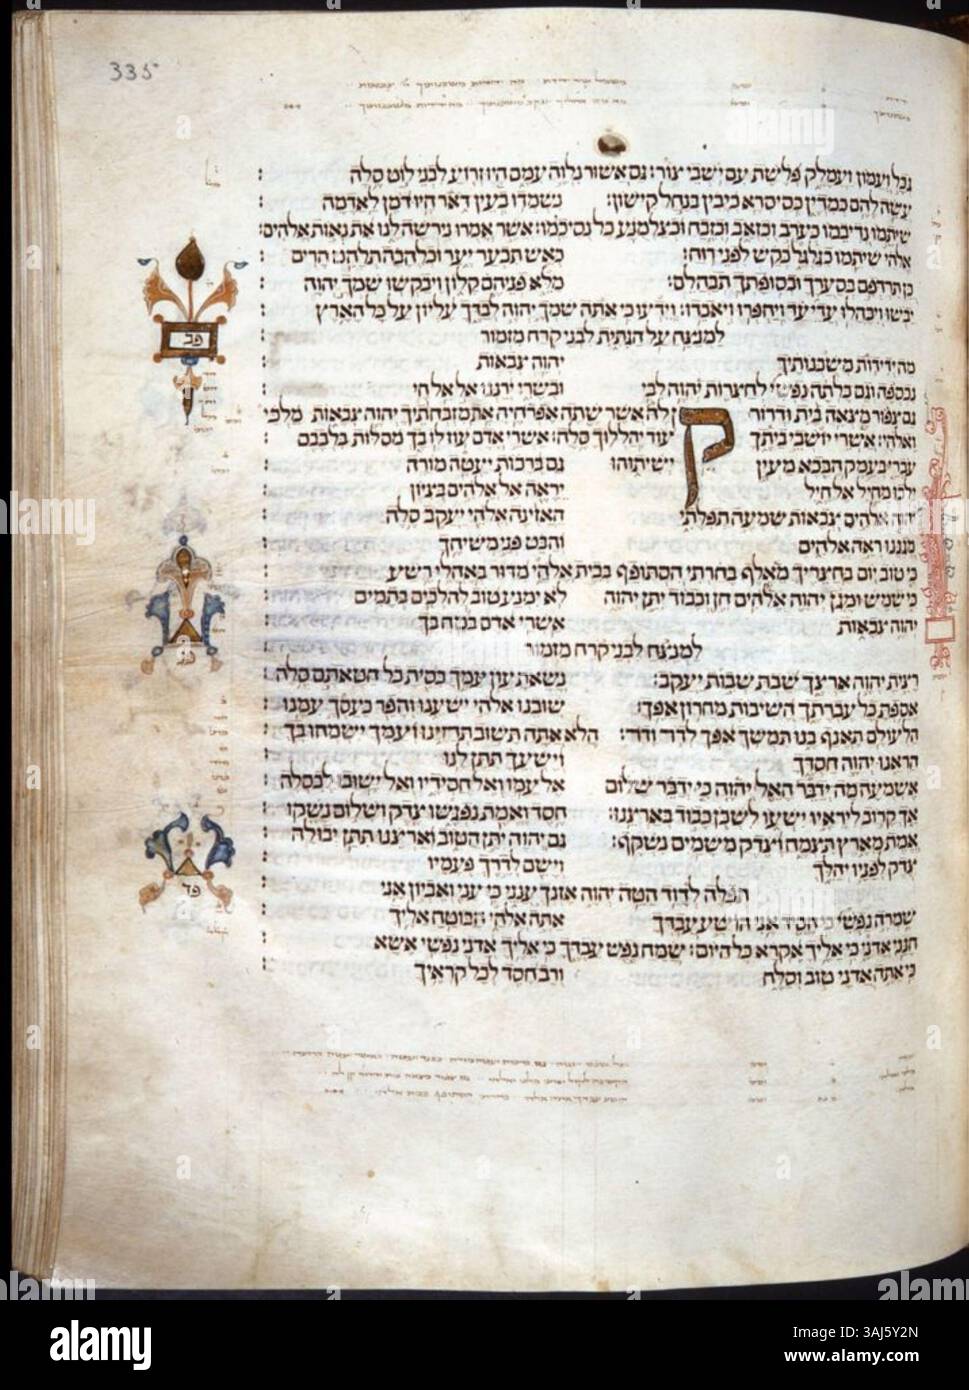 335
גבל ועמון ועמלק פלשת עם ישבי צור: גם אשור נלוה עמם היו זרוע לבני לוט סלה :
עשה להם כמדין כסיסרא כיבין בנחל קישון: נשמדו בעין דאר היו דמן לאדמה :
שיתמו נדיבמו כערב וכזאב וכזבח וכצלמנע כל נסיכמו: אשר אמרו נירשה לנו את נאות אלהים:
אלהי שיתמו כגלגל כקש לפני רוח: כאש תבער יער וכלהבה תלהט הרים :
כן תרדפם בסערך ובסופתך תבהלם: מלא פניהם קלון ויבקשו שמך יהוה :
יבשו ויבהלו עדי עד ויחפרו ויאבדו: וידעו כי אתה שמך יהוה לבדך עליון על כל הארץ :
למנצח על הגתית לבני קרח מזמור
מה ידידות משכנותיך יהוה צבאות :
נכספה וגם כלתה נפשי לחצרות יהוה לבי ובשרי ירננו אל אל חי :
גם צפור מצאה בית ודרור קן לה אשר שתה אפרחיה את מזבחתיך יהוה צבאות מלכי
ואלהי: אשרי יושבי ביתך עוד יהללוך סלה: אשרי אדם עוז לו בך מסלות בלבבם :
עברי בעמק הבכא מעין ישיתוהו גם ברכות יעטה מורה :
ילכו מחיל אל חיל יראה אל אלהים בציון :
יהוה אלהים צבאות שמעה תפלתי האזינה אלהי יעקב סלה :
מגננו ראה אלהים והבט פני משיחך :
כי טוב יום בחצריך מאלף בחרתי הסתופף בבית אלהי מדור באהלי רשע :
כי שמש ומגן יהוה אלהים חן וכבוד יתן יהוה לא ימנע טוב להלכים בתמים :
יהוה צבאות אשרי אדם בטח בך :
למנצח לבני קרח מזמור
רצית יהוה ארצך שבת שבות יעקב: נשאת עון עמך כסית כל חטאתם סלה :
אספת כל עברתך השיבות מחרון אפך: שובנו אלהי ישענו והפר כעסך עמנו :
הלעולם תאנף בנו תמשך אפך לדר ודר: הלא אתה תשוב תחיינו ועמך ישמחו בך :
הראנו יהוה חסדך וישעך תתן לנו :
אשמעה מה ידבר האל יהוה כי ידבר שלום אל עמו ואל חסידיו ואל ישובו לכסלה :
אך קרוב ליראיו ישעו לשכן כבוד בארצנו: חסד ואמת נפגשו צדק ושלום נשקו :
אמת מארץ תצמח וצדק משמים נשקף: גם יהוה יתן הטוב וארצנו תתן יבולה :
צדק לפניו יהלך וישם לדרך פעמיו :
תפלה לדוד הטה יהוה אזנך ענני כי עני ואביון אני :
שמרה נפשי כי חסיד אני הושע עבדך אתה אלהי הבוטח אליך :
חנני אדני כי אליך אקרא כל היום: שמח נפש עבדך כי אליך אדני נפשי אשא :
כי אתה אדני טוב וסלח ורב חסד לכל קראיך :
פב
פג
פד
alamy
Image ID: 3AJ5Y2N
www.alamy.com